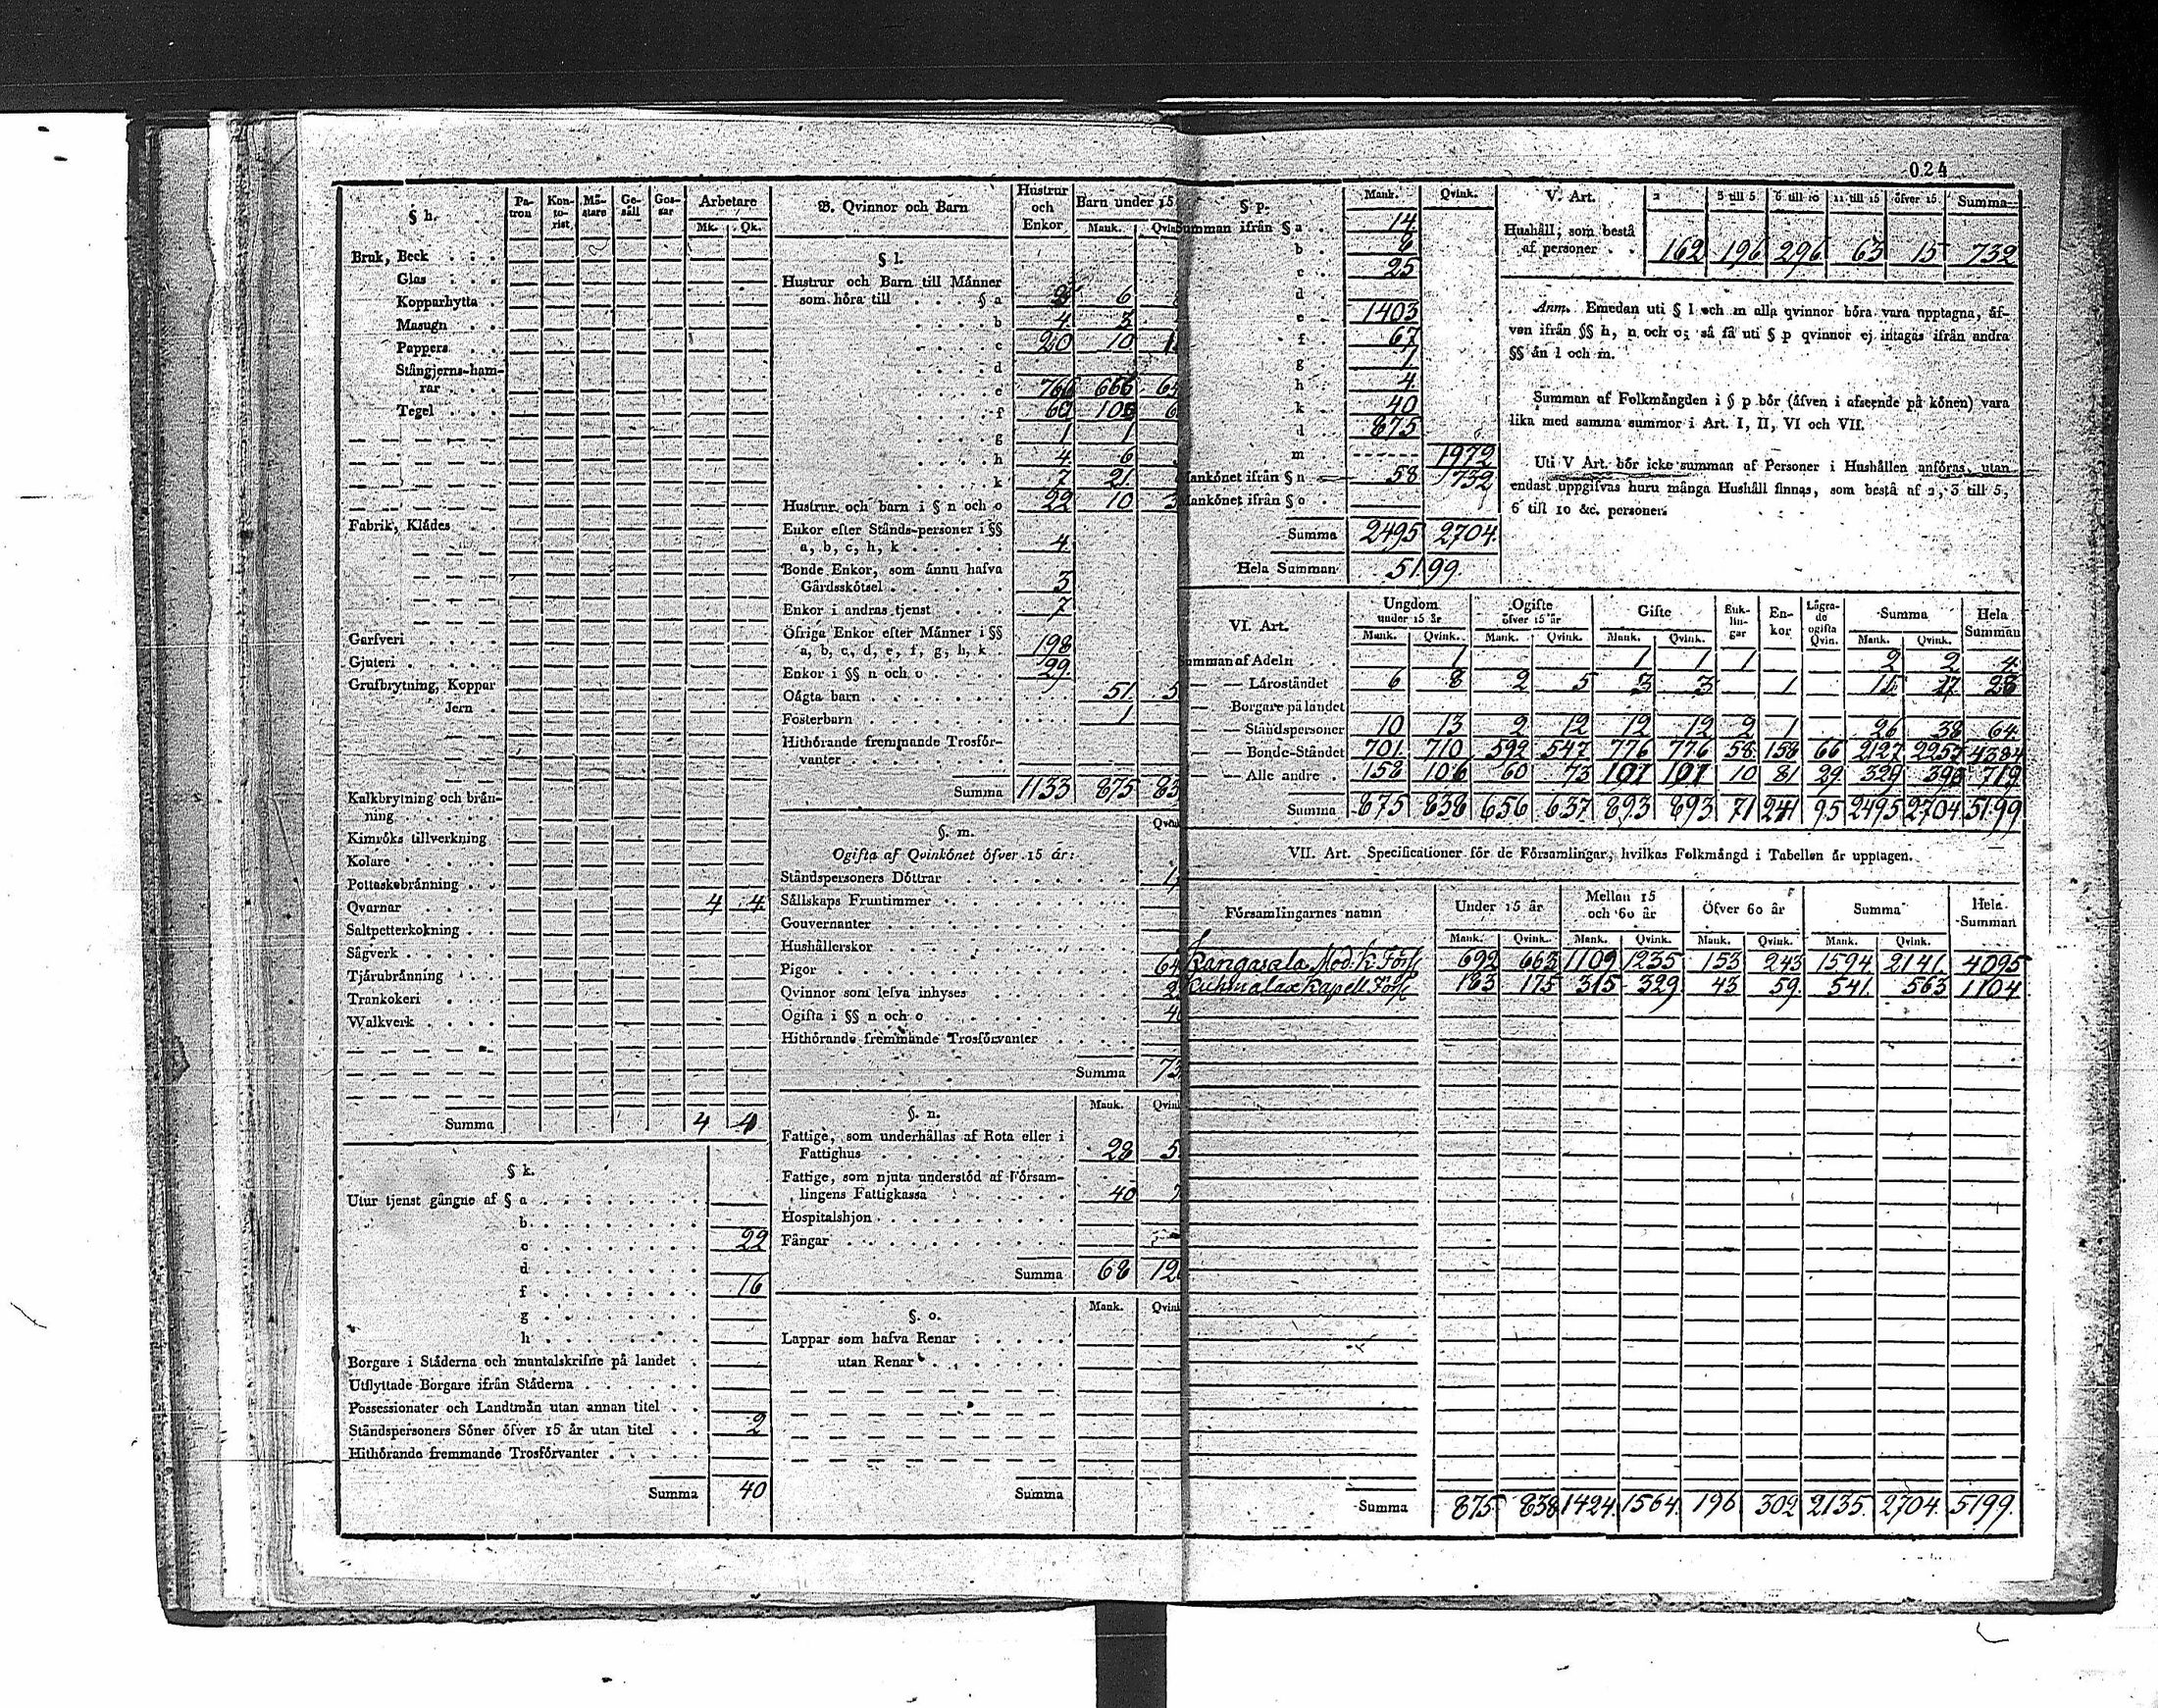 024
§ h.
Patron Kontorist Mästare Gesäll Gossar Arbetare
Mk. Qk.
Bruk, Beck
Glas
Kopparhytta
Masugn
Pappers
Stångjerns-hamrar
Tegel
Fabrik, Klädes
Garfveri
Gjuteri
Grufbrytning, Koppar
Jern
Kalkbrytning och bränning
Kimröks tillverkning
Kolare
Pottaskebränning
Qvarnar 4 4
Saltpetterkokning
Sågverk
Tjärubränning
Trankokeri
Walkverk
Summa 4 4
§ k.
Utur tjenst gångne af § a
b
c 22
d
f 16
g
h
Borgare i Städerna och mantalskrifne på landet
Utflyttade Borgare ifrån Städerna
Possessionater och Landtmän utan annan titel
Ståndspersoners Söner öfver 15 år utan titel 2
Hithörande fremmande Trosförvanter
Summa 40
B. Qvinnor och Barn
Hustrur och Enkor
Barn under 15
Mank. Qvink
§ l.
Hustrur och Barn till Männer
som höra till § a 6
b 4 3
c 20 10
d
e 766 666
f 60
g 1 1
h 4 6
k 7 21
Hustrur och barn i § n och o 22 10
Enkor efter Stånds-personer i §§
a, b, c, h, k 4
Bonde Enkor, som ännu hafva
Gårdsskötsel 3
Enkor i andras tjenst 7
Öfriga Enkor efter Männer i §§
a, b, c, d, e, f, g, h, k 198
Enkor i §§ n och o 99
Oägta barn 51
Fosterbarn 1
Hithörande fremmande Trosförvanter
Summa 1133 875 83
§. m.
Ogifta af Qvinkönet öfver 15 år:
Ståndspersoners Döttrar
Sällskaps Fruntimmer
Gouvernanter
Hushållerskor
Pigor 64
Qvinnor som lefva inhyses
Ogifta i §§ n och o
Hithörande fremmande Trosförvanter
Summa 73
§. n.
Mank. Qvink
Fattige, som underhållas af Rota eller i
Fattighus 28 5
Fattige, som njuta understöd af Församlingens Fattigkassa 40 7
Hospitalshjon
Fångar
Summa 68 12
§. o.
Mank. Qvink
Lappar som hafva Renar
utan Renar
Summa
§ p.
Mank. Qvink.
Summan ifrån § a 14
b 8
c 25
d
e 1403
f 67
g 1
h 4
k 40
d 875
m 1972
Mankönet ifrån § n 58 732
Mankönet ifrån § o
Summa 2495 2704
Hela Summan 5199
V. Art.
2 3 till 5 6 till 10 11 till 15 öfver 15 Summa
Hushåll, som bestå
af personer 162 196 296 63 15 732
Anm. Emedan uti § l och m alla qvinnor böra vara upptagna, äfven ifrån §§ h, n och o; så få uti § p qvinnor ej intagas ifrån andra
§§ än l och m.
Summan af Folkmängden i § p bör (äfven i afseende på könen) vara
lika med samma summor i Art. I, II, VI och VII.
Uti V Art. bör icke summan af Personer i Hushållen anföras, utan
endast uppgifvas huru många Hushåll finnas, som bestå af 2, 3 till 5,
6 till 10 &c. personer.
VI. Art.
Ungdom under 15 år Ogifte öfver 15 år Gifte Enklingar Enkor Lägrade ogifta Qvin. Summa Hela Summan
Mank. Qvink. Mank. Qvink. Mank. Qvink. Mank. Qvink.
Summan af Adeln 1 1 1 1 2 2 4
Läroståndet 6 8 2 5 3 3 1 11 17 28
Borgare på landet
Ståndspersoner 10 13 2 12 12 12 2 1 26 38 64
Bonde-Ståndet 701 710 592 547 776 776 58 158 66 2127 2257 4384
Alle andre 158 106 60 73 101 101 10 81 29 329 390 719
Summa 875 838 656 637 893 893 71 241 95 2495 2704 5199
VII. Art. Specificationer för de Församlingar, hvilkas Folkmängd i Tabellen är upptagen.
Församlingarnes namn Under 15 år Mellan 15 och 60 år Öfver 60 år Summa Hela Summan
Mank. Qvink. Mank. Qvink. Mank. Qvink. Mank. Qvink.
Kangasala Mod. K. Förs 692 663 1109 1235 153 243 1594 2141 4095
Kuhmalax Kapell Förs 183 175 315 329 43 59 541 563 1104
Summa 875 838 1424 1564 196 302 2135 2704 5199